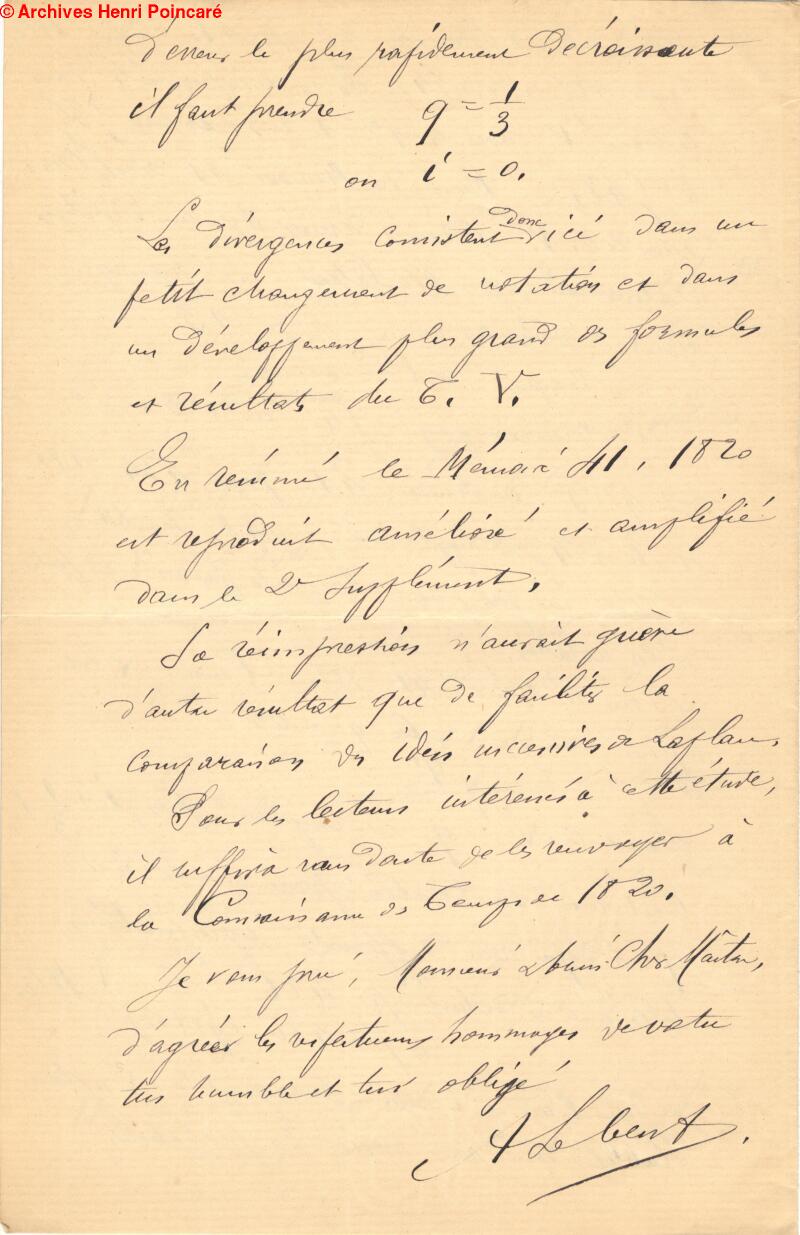 © Archives Henri Poincaré
d'erreur le plus rapidement décroissante
il faut prendre q = 1/3
ou i = 0.
Les divergences consistent donc ici dans un
petit changement de notation et dans
un développement plus grand des formules
et résultats du T. V.
En résumé le Mémoire 41, 1820
est reproduit amélioré et amplifié
dans le 2e Supplément.
La réimpression n'aurait guère
d'autre résultat que de faciliter la
comparaison des idées successives de Laplace.
Pour les lecteurs intéressés à cette étude,
il suffira sans doute de les renvoyer à
la Connaissance des Temps de 1820.
Je vous prie, Monsieur et Cher Maître,
d'agréer les respectueux hommages de votre
très humble et très obligé
A Lebeuf.